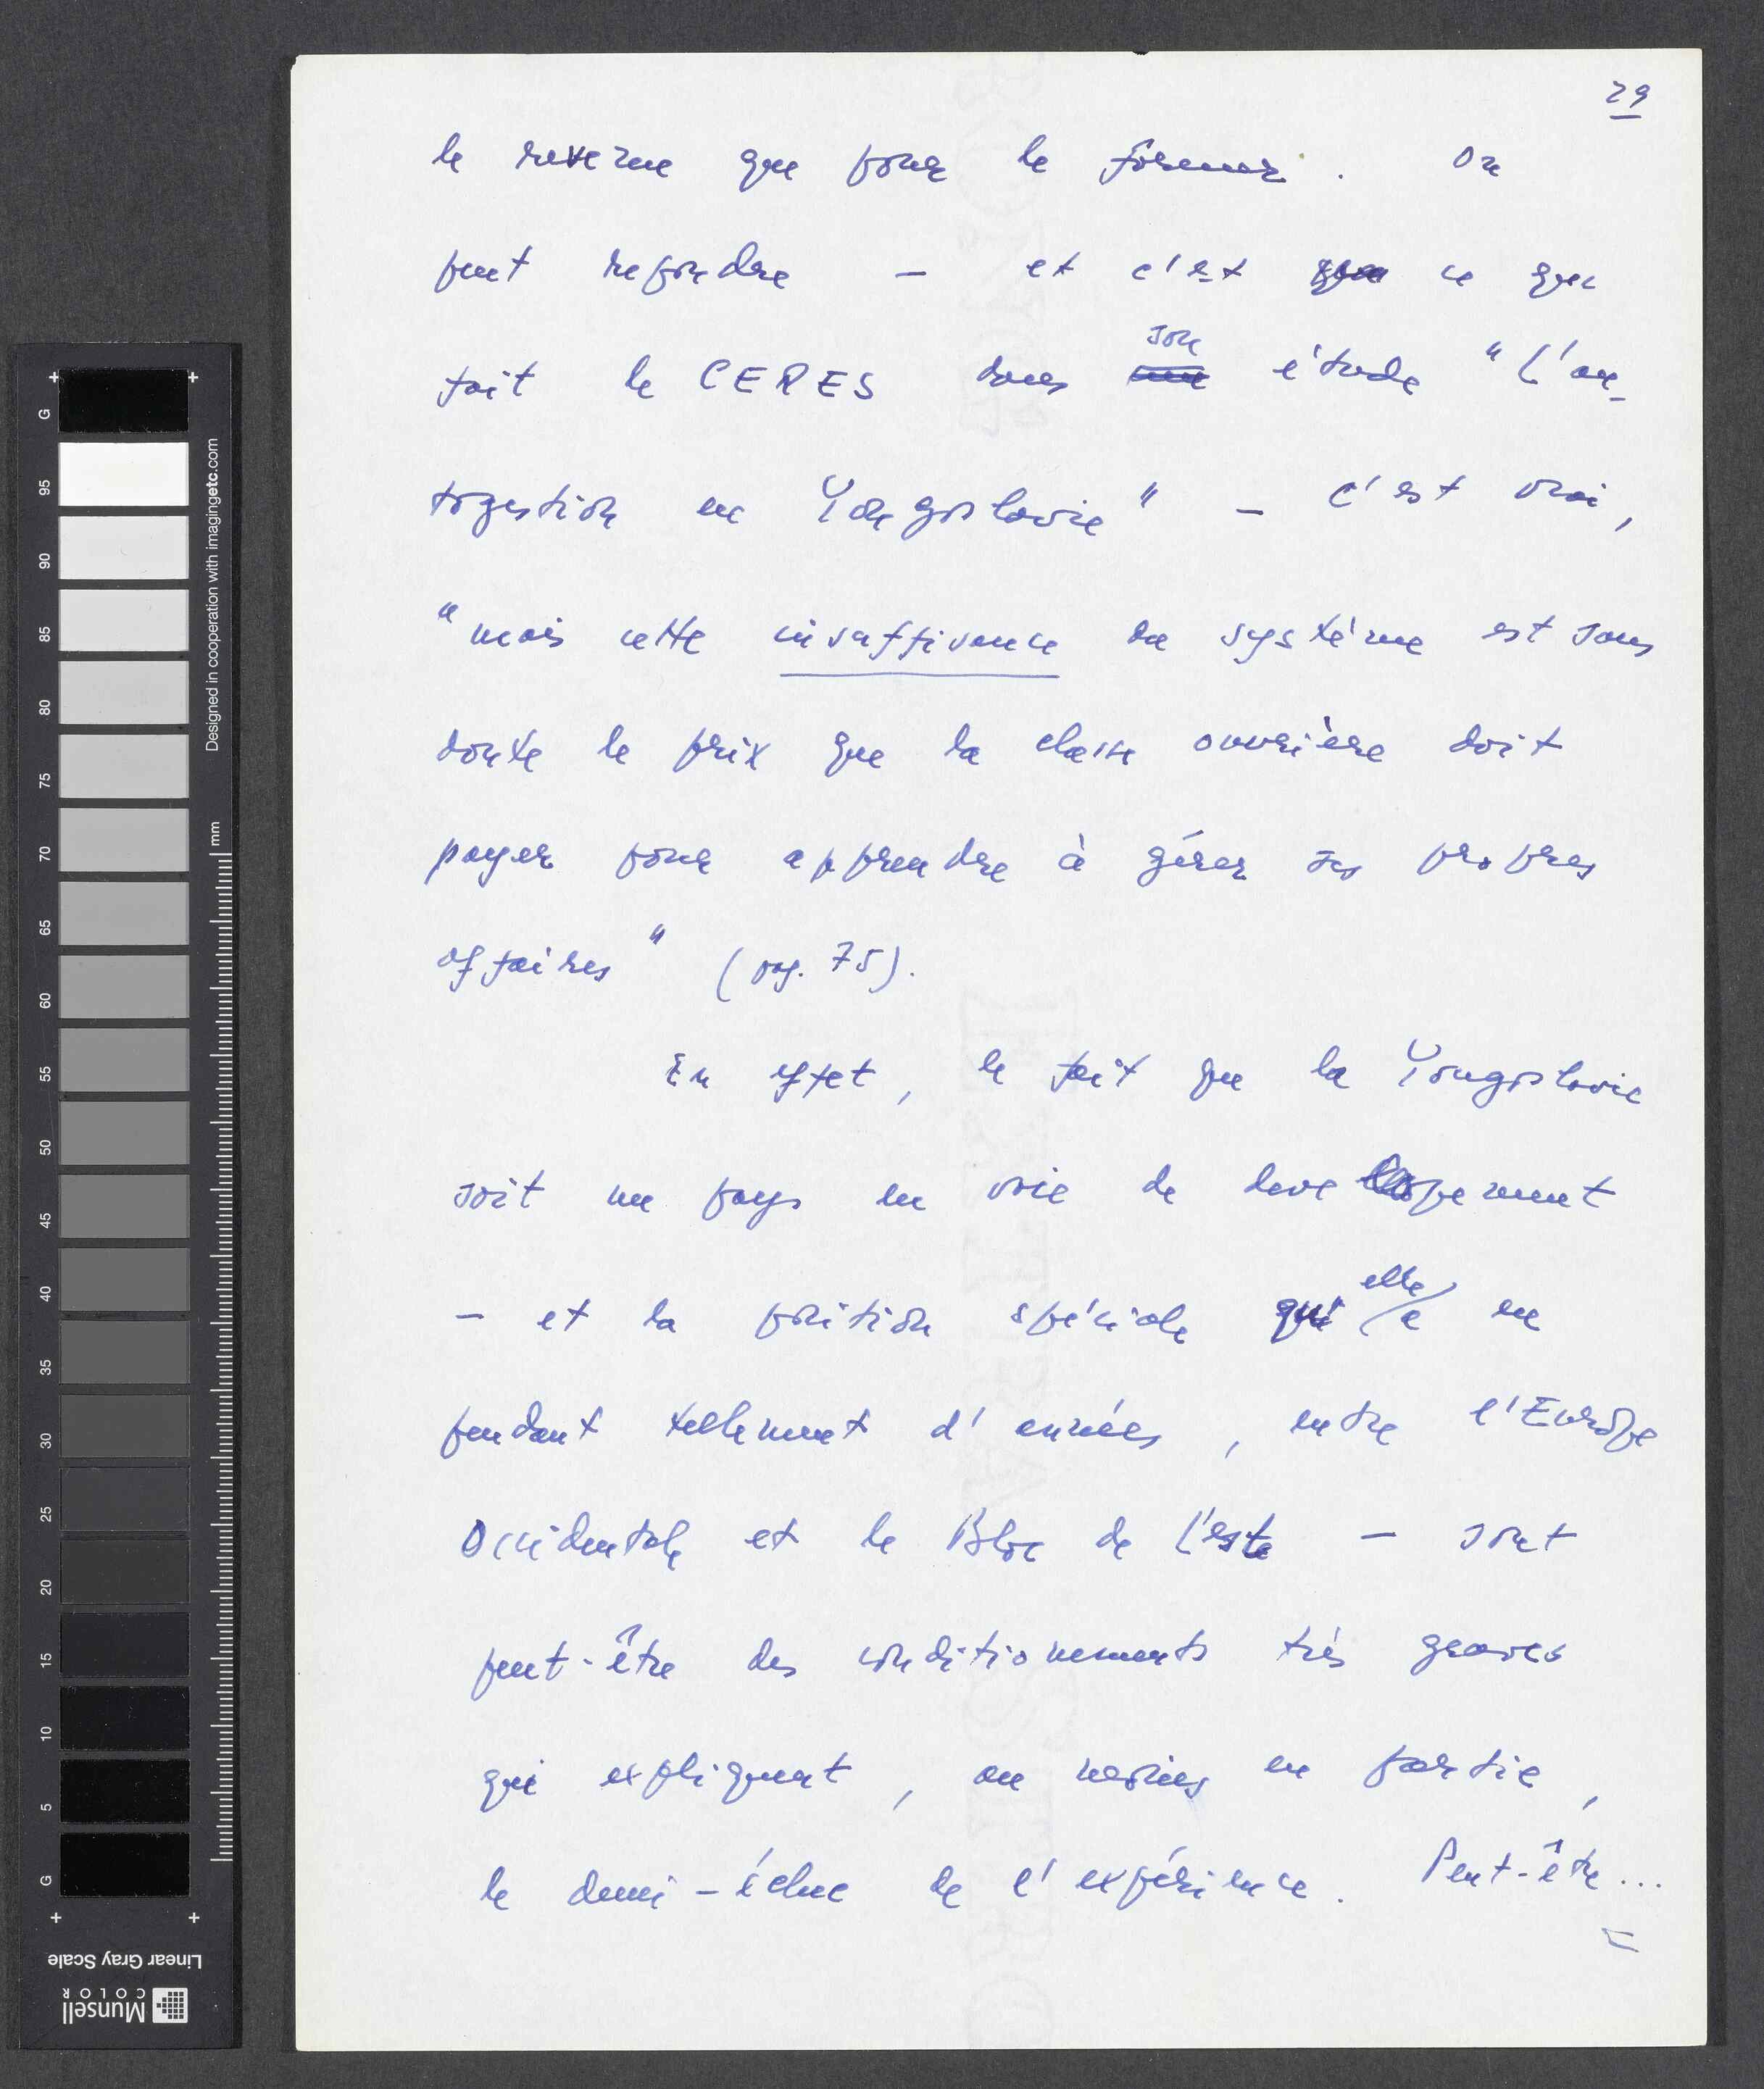 29
le reverse que pour le former. On
peut repondre — et c'est ce que
fait le CERES dans son étude "L'au-
togestion en Yougoslavie" — c'est vrai,
"mais cette insuffisance du systéme est sans
doute le prix que la classe ouvrière doit
payer pour apprendre à gérer ses propres
affaires" (pag. 75).
En effet, le fait que la Yougoslavie
soit un pays en voie de developement
— et la position spéciale qu'elle a eu
pendant tellement d'années, entre l'Europe
Occidentale et le Bloc de l'este — sont
peut-être des conditionements très graves
qui expliquent, au moins en partie,
le demi-échec de l'expérience. Peut-être...
G
95
90
85
80
75
70
65
60
55
50
45
40
35
30
25
20
15
10
5
G
mm
Designed in cooperation with imagingetc.com
Linear Gray Scale
Munsell
COLOR